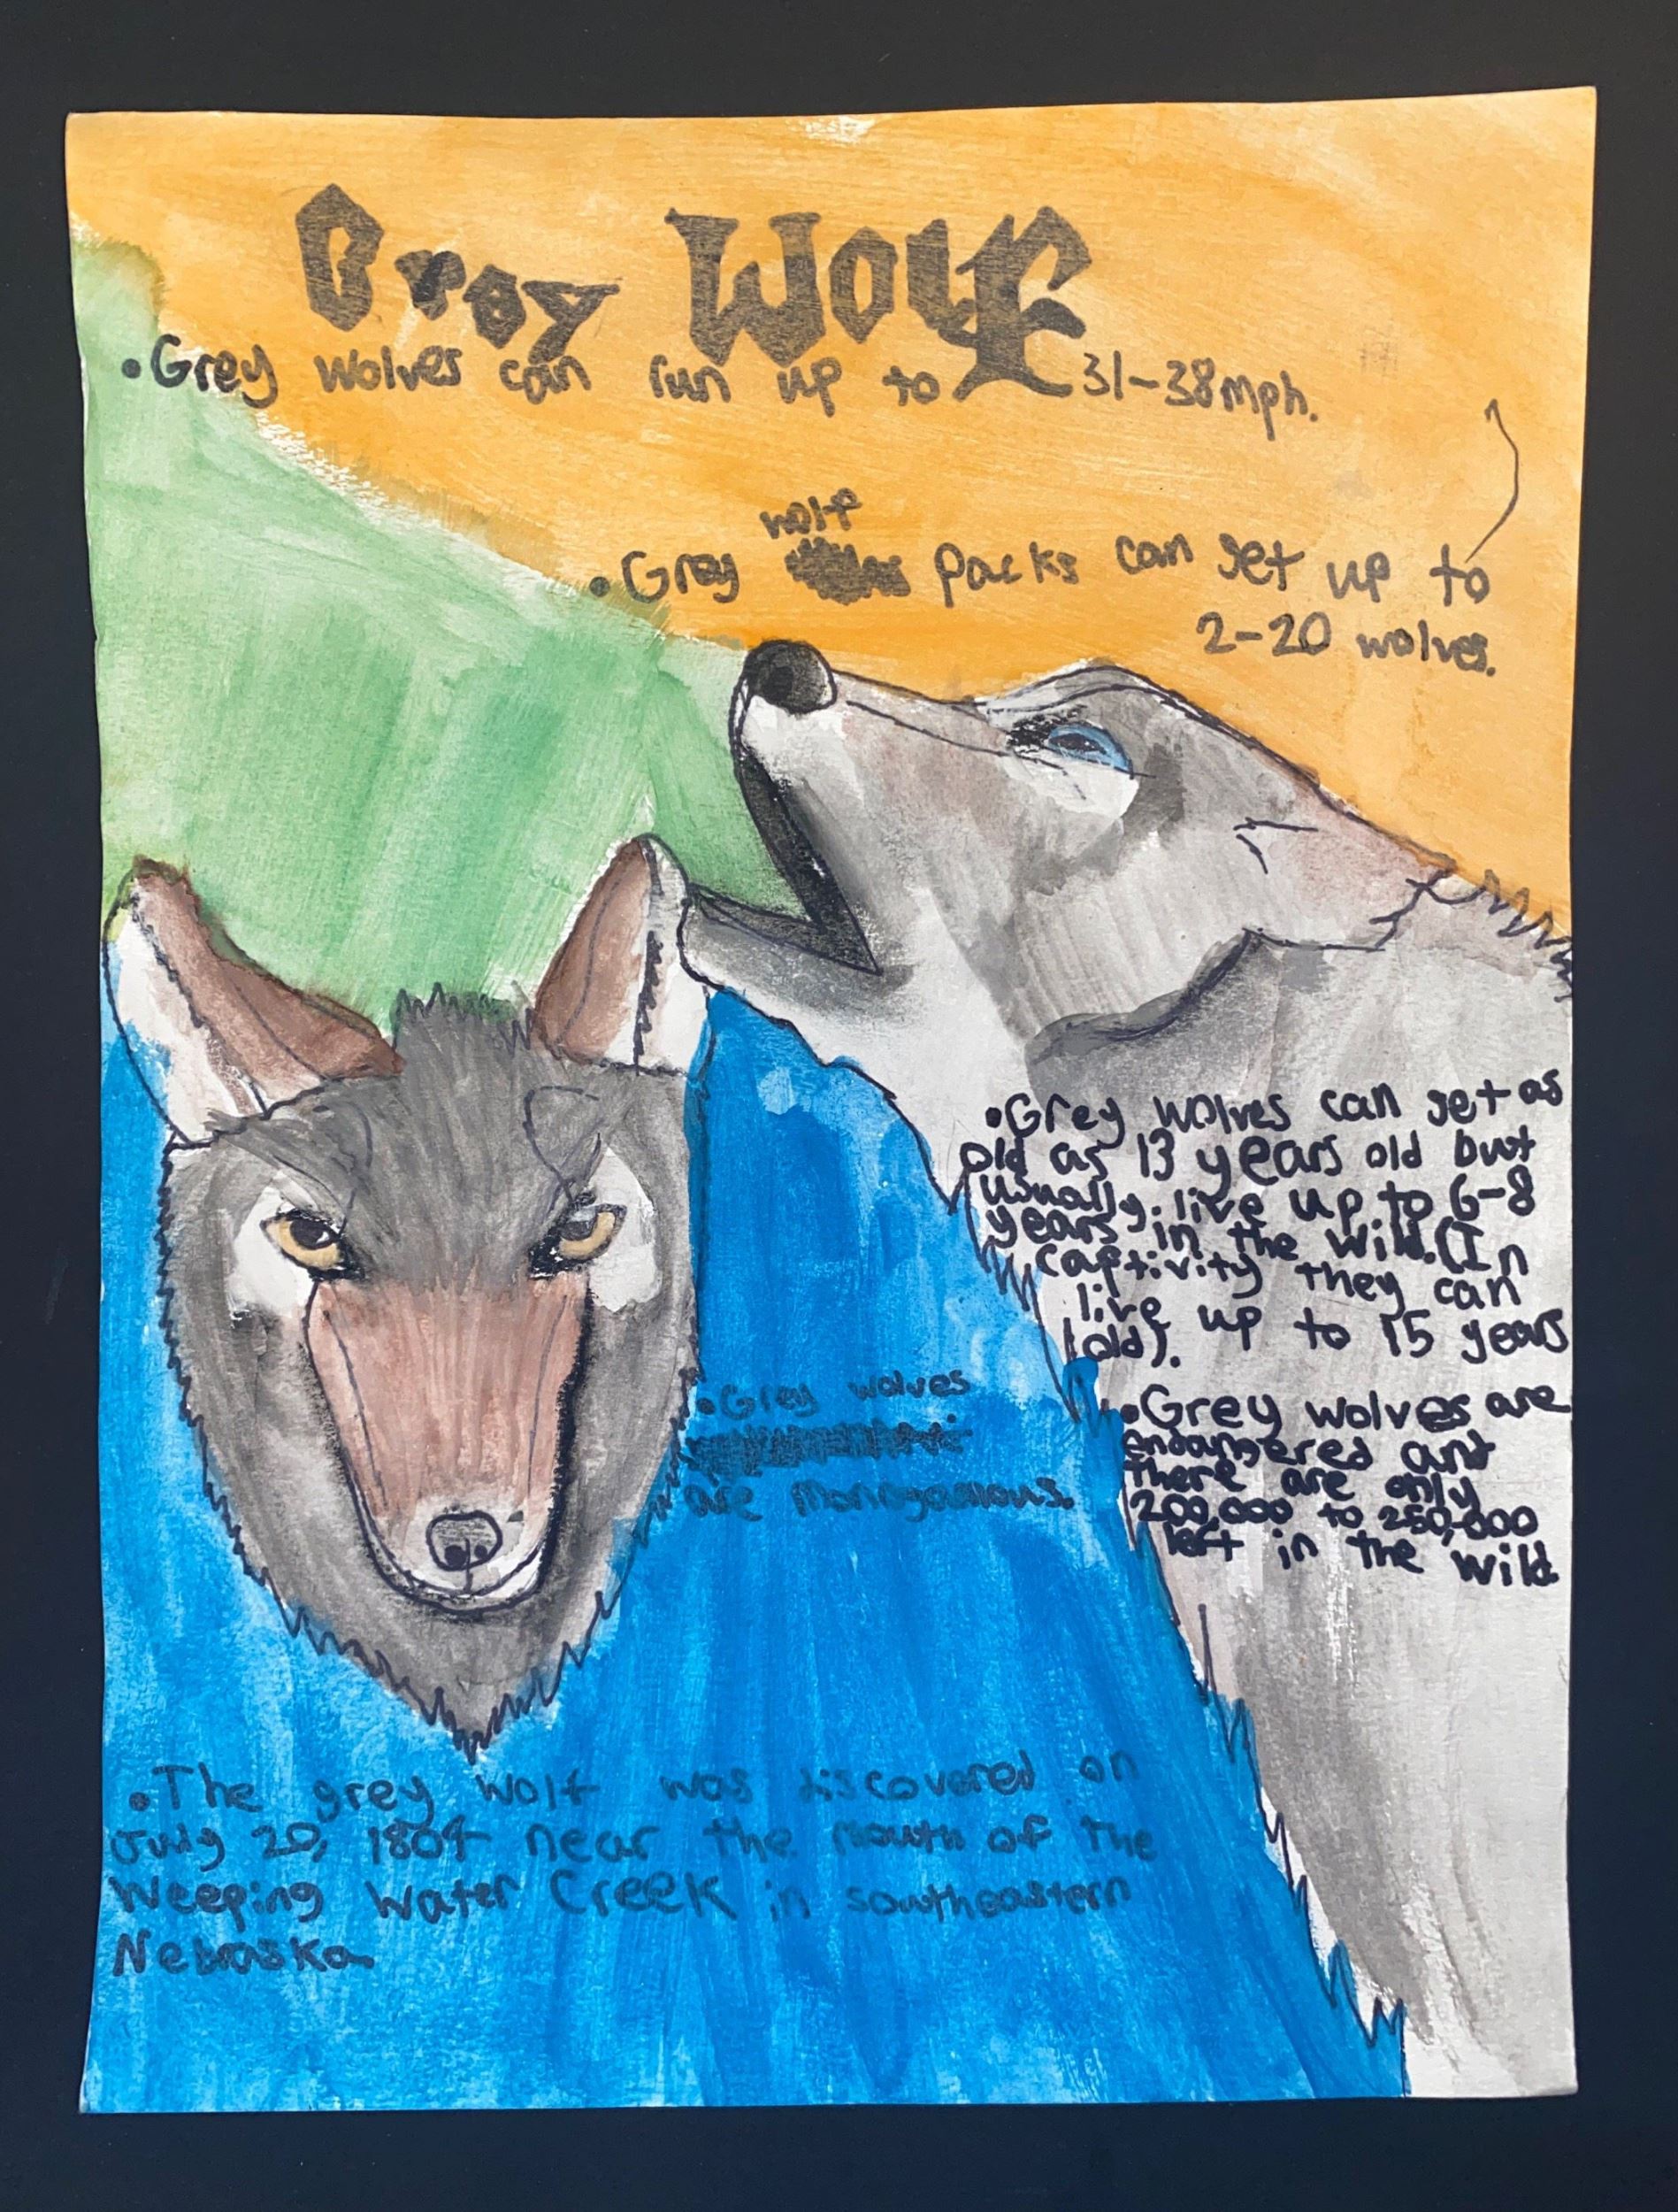 Grey Wolf
•Grey wolves can run up to 31-38mph.
wolf
•Grey packs can get up to
2-20 wolves.
•Grey wolves can get as
old as 13 years old but
usually live up to 6-8
years in the wild.(In
captivity they can
live up to 15 years
old).
•Grey wolves
are monogamous.
•Grey wolves are
endangered ant
there are only
200,000 to 250,000
left in the wild.
•The grey wolf was discovered on
July 20, 1804 near the mouth of the
Weeping Water Creek in southeastern
Nebraska